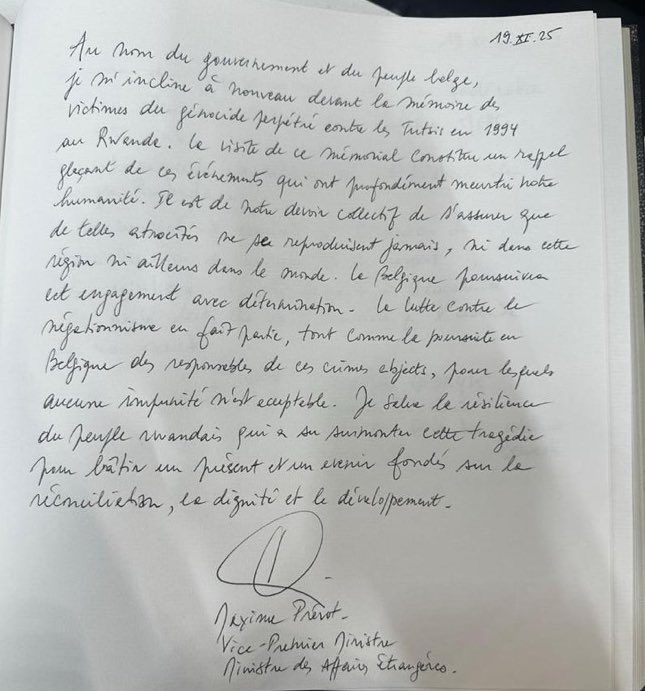 19.XI.25
Au nom du gouvernement et du peuple belge,
je m'incline à nouveau devant la mémoire des
victimes du génocide perpétré contre les Tutsis en 1994
au Rwanda. La visite de ce mémorial constitue un rappel
glaçant de ces événements qui ont profondément meurtri notre
humanité. Il est de notre devoir collectif de s'assurer que
de telles atrocités ne se reproduisent jamais, ni dans cette
région ni ailleurs dans le monde. La Belgique poursuivra
cet engagement avec détermination. La lutte contre le
négationnisme en fait partie, tout comme la poursuite en
Belgique des responsables de ces crimes abjects, pour lesquels
aucune impunité n'est acceptable. Je salue la résilience
du peuple rwandais qui a su surmonter cette tragédie
pour bâtir un présent et un avenir fondés sur la
réconciliation, la dignité et le développement.
Maxime Prévot.
Vice-Premier Ministre
Ministre des Affaires Étrangères.